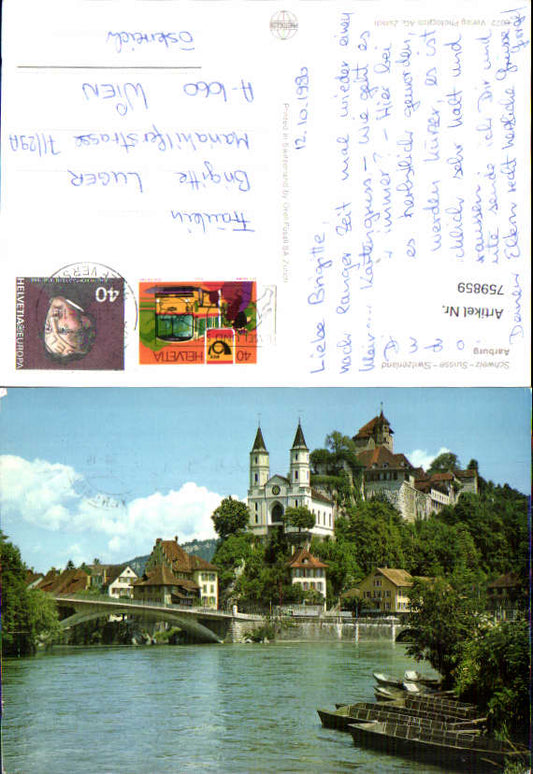 Schweiz – Suisse – Switzerland
Aarburg
Artikel Nr.
759859
12.10.1980
Liebe Brigitte,
nach langer Zeit mal wieder einen
Kartengruss – wie geht es
immer? – Hier bei
es herbstlich geworden,
werden kürzer, es ist
sehr kalt und
draussen.
sende ich Dir und
Deinen Eltern recht herzliche Grüsse
Printed in Switzerland by Orell Füssli S.A. Zürich
Verlag Photoglob AG, Zürich
HELVETIA EUROPA
40
HELVETIA
40
Fräulein
Brigitte LUGER
Mariahilferstrasse 71/29A
A-1060 WIEN
Österreich